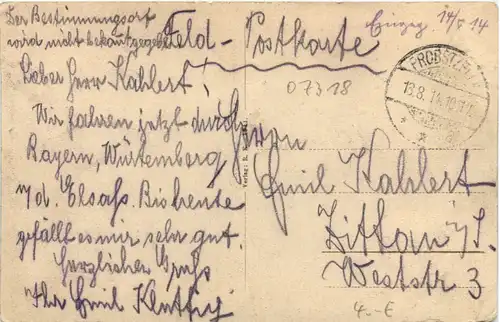 Der Bestimmungsort
wird nicht bekantgegeben
Feld-Postkarte
14/8 14
Lieber Herr Kahlert!
Wir fahren jetzt durch
Bayern, Würtemberg
n/d. Elsaß. Bis heute
gefällt es mir sehr gut.
Herzlichen Gruß
Ihr Emil
07318
PROBSTZELLA
13.8.14.
Verlag: R.
Herrn
Emil Kahlert
Zittau i/S.
Weststr 3
4.-E